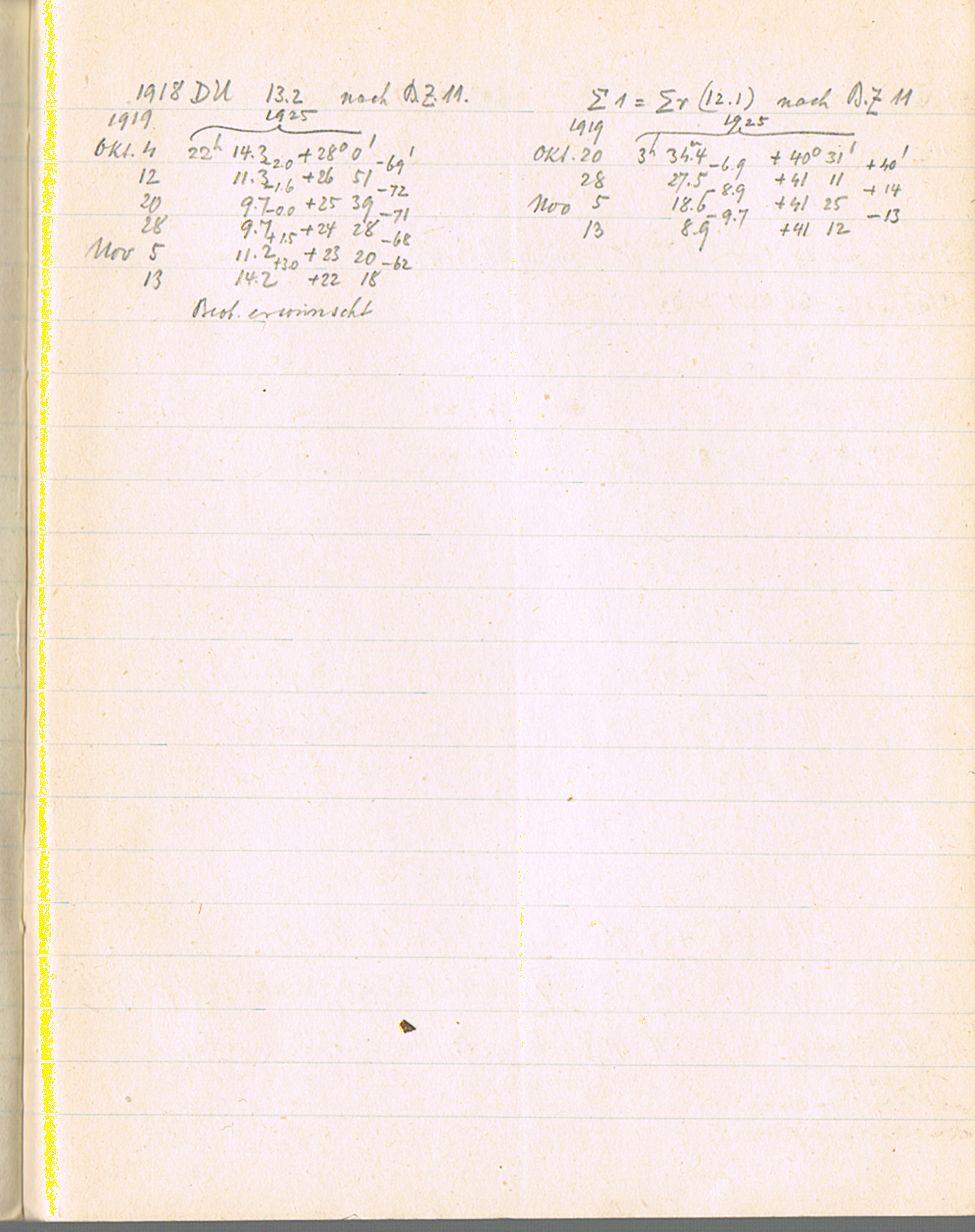 1918 DU 13.2 nach B.Z. 11.
1919 1925
Okt. 4 22h 14.3 +28° 0'
-2.0 -69'
12 11.3 +26 51
-1.6 -72
20 9.7 +25 39
-0.0 -71
28 9.7 +24 28
+1.5 -68
Nov 5 11.2 +23 20
+3.0 -62
13 14.2 +22 18
Beob. erwünscht
Σ 1 = Σr (12.1) nach B.Z 11
1919 1925
Okt. 20 3h 34.4m +40° 31'
-6.9 +40'
28 27.5 +41 11
-8.9 +14
Nov 5 18.6 +41 25
-9.7 -13
13 8.9 +41 12